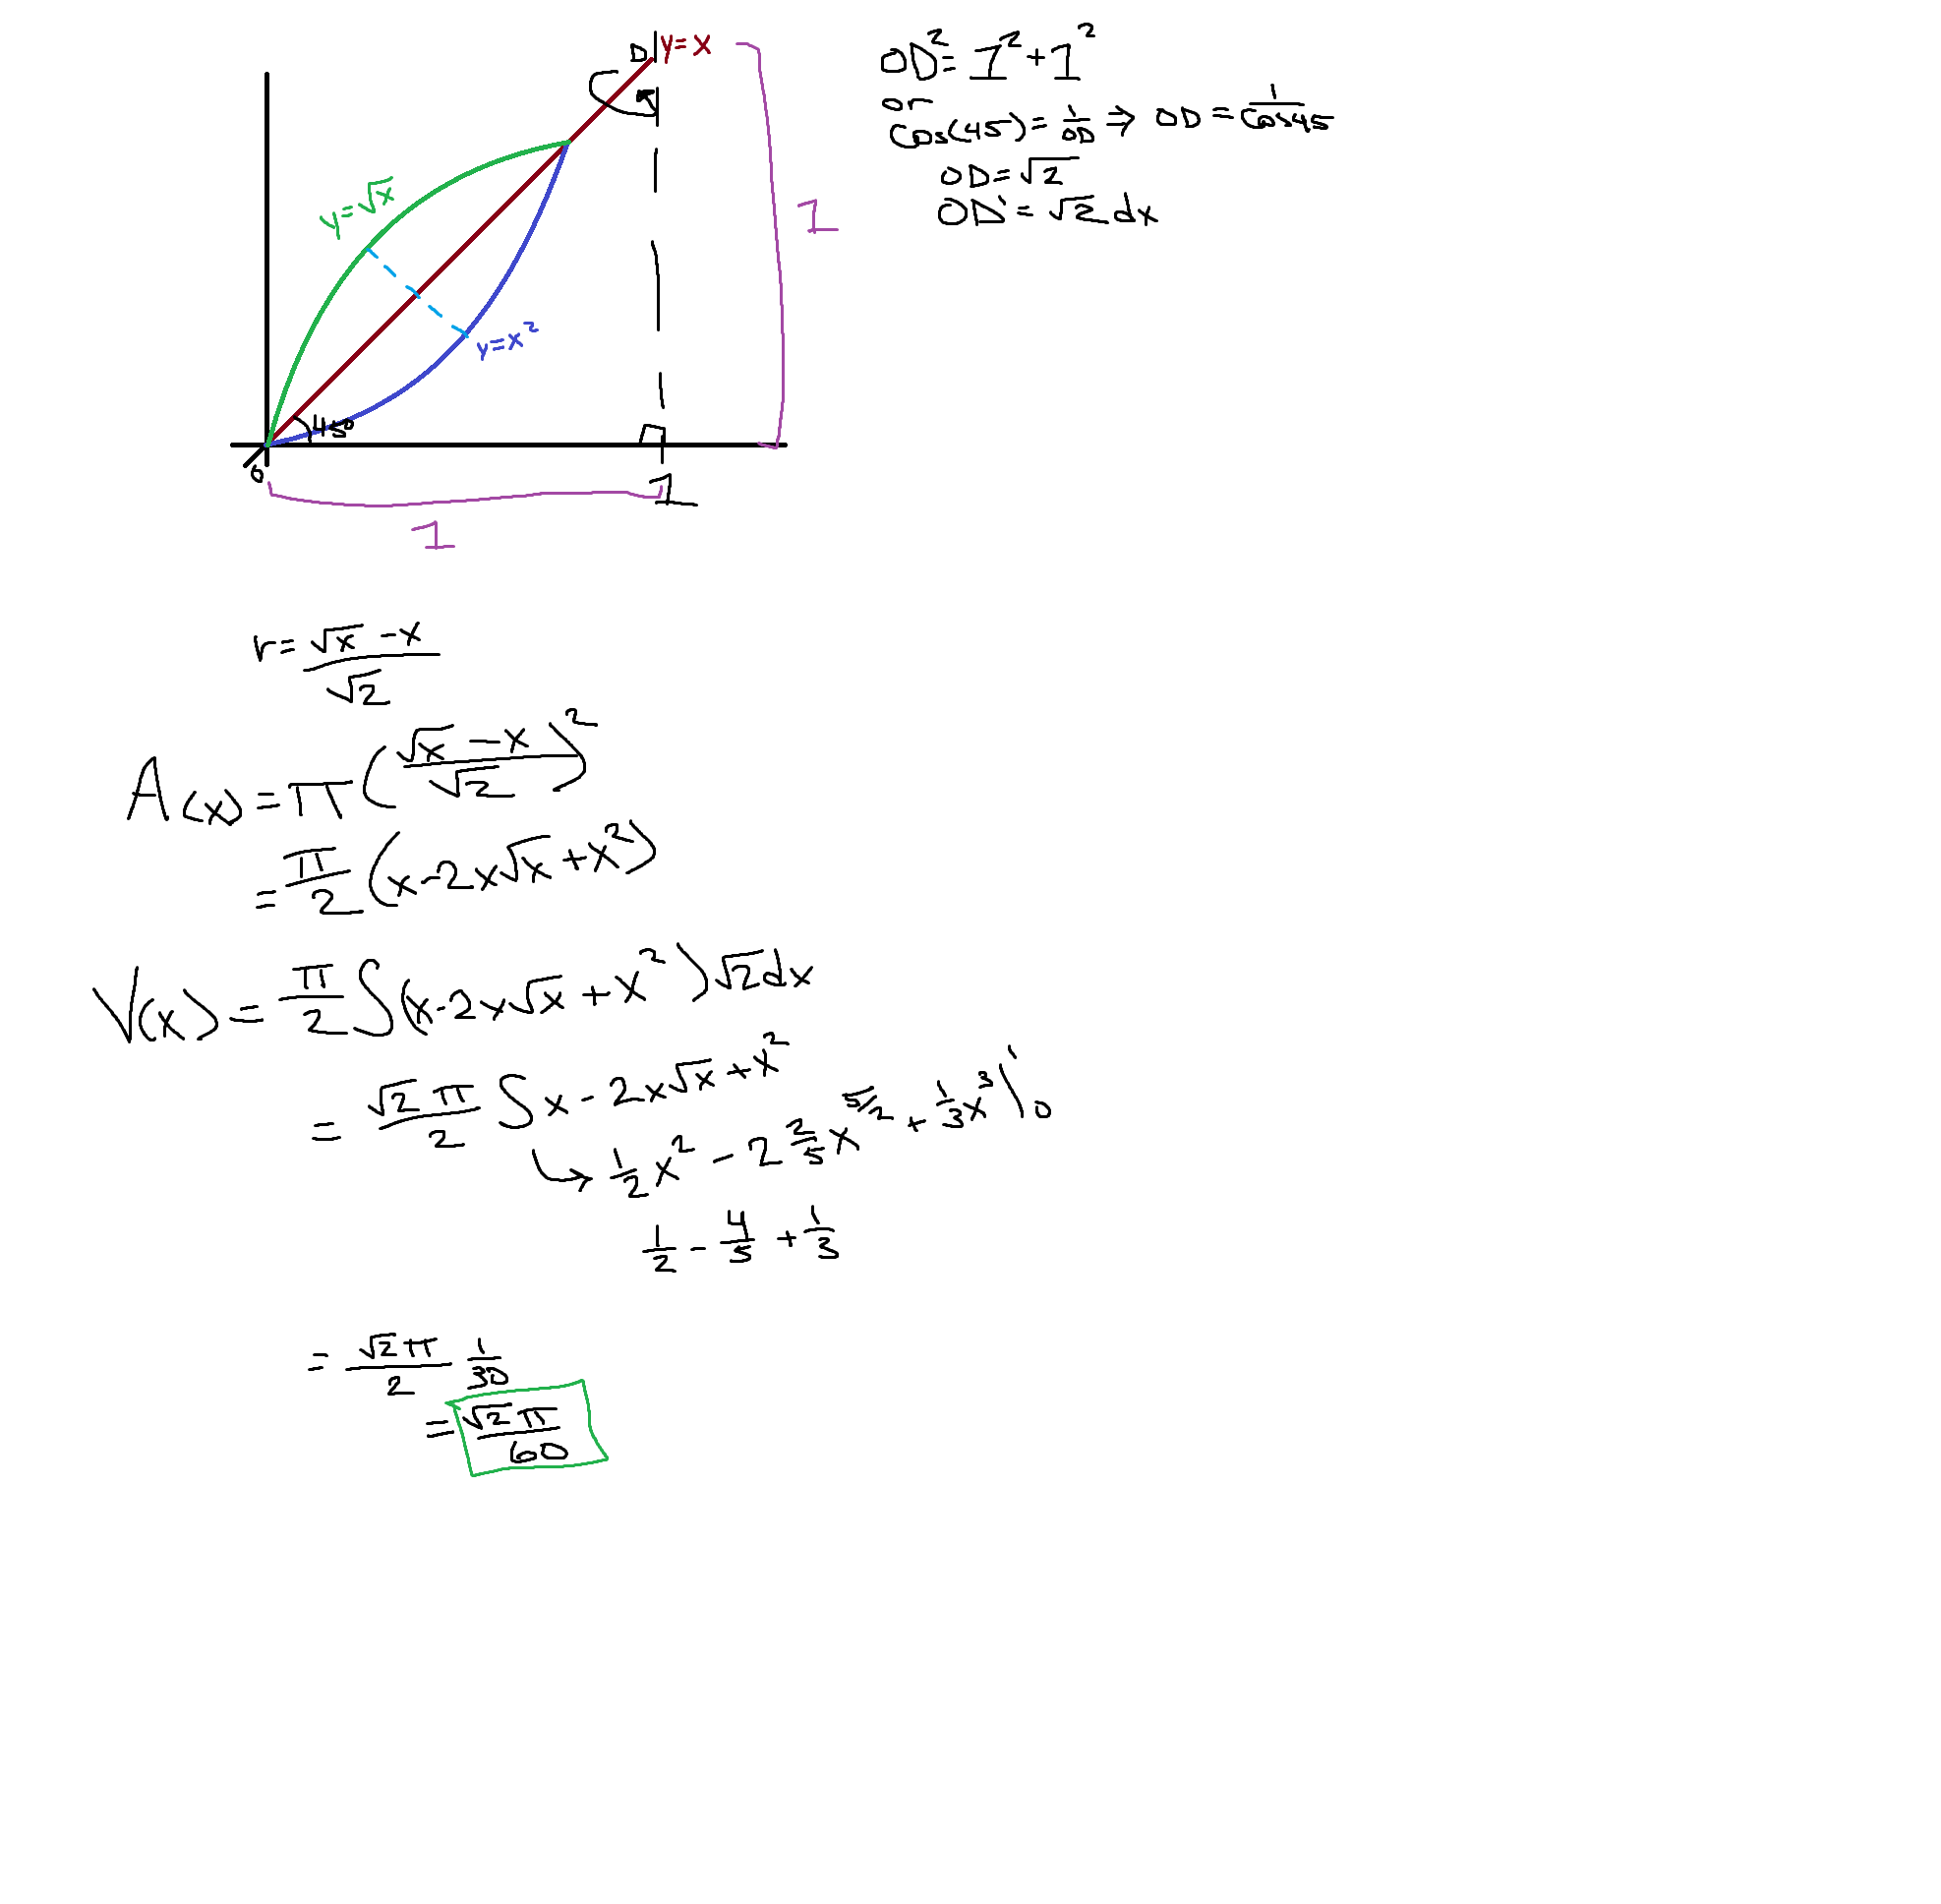 D y=x
y=√x
y=x²
45°
O
1
1
1
OD²= 1²+1²
or
cos(45)= 1/OD ⇒ OD = 1/cos45
OD=√2
OD'=√2 dx
r= (√x -x)/√2
A(x)=π((√x -x)/√2)²
= π/2 (x-2x√x+x²)
V(x)= π/2 ∫(x-2x√x+x²)√2dx
= √2 π/2 ∫x-2x√x+x²
↳ 1/2 x² - 2 2/5 x^5/2 + 1/3 x³ |¹₀
1/2 - 4/5 + 1/3
= √2π/2 1/30
= √2π/60